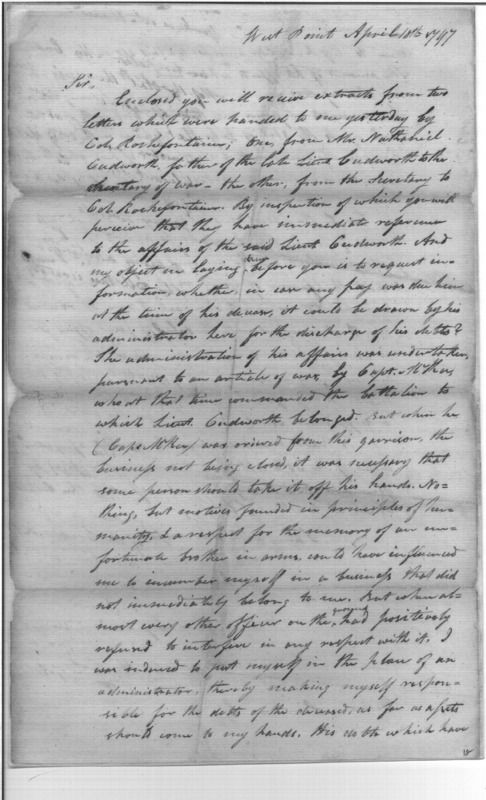 West Point April 18th 1797
Sir,
Enclosed you will receive extracts from two
letters which were handed to me yesterday by
Col. Rochefontaine; one, from Mr. Nathaniel
Cudworth, father of the late Lieut. Cudworth to the
Secretary of war – the other, from the Secretary to
Col. Rochefontaine. By inspection of which you will
perceive that they have immediate reference
to the affairs of the said Lieut Cudworth. And
my object in laying them before you is to request in-
formation, whether, in case any pay was due him
at the time of his decease, it could be drawn by his
administrator here for the discharge of his debts?
The administration of his affairs was undertaken,
pursuant to an article of war, by Capt.
who at that time commanded the battalion to
which Lieut. Cudworth belonged. But when he
(Capt. ) was ordered from this garrison, the
business not being closed, it was necessary that
some person should take it off his hands. No-
thing, but motives founded in principles of hu-
manity, & a respect for the memory of an un-
fortunate brother in arms, could have influenced
me to incumber myself in a business that did
not immediately belong to me. But when al-
most every other officer on the ground had positively
refused to interfere in any respect with it, I
was induced to put myself in the place of an
administrator, thereby making myself respon-
sible for the debts of the deceased, as far as assets
should come to my hands. His debts which have